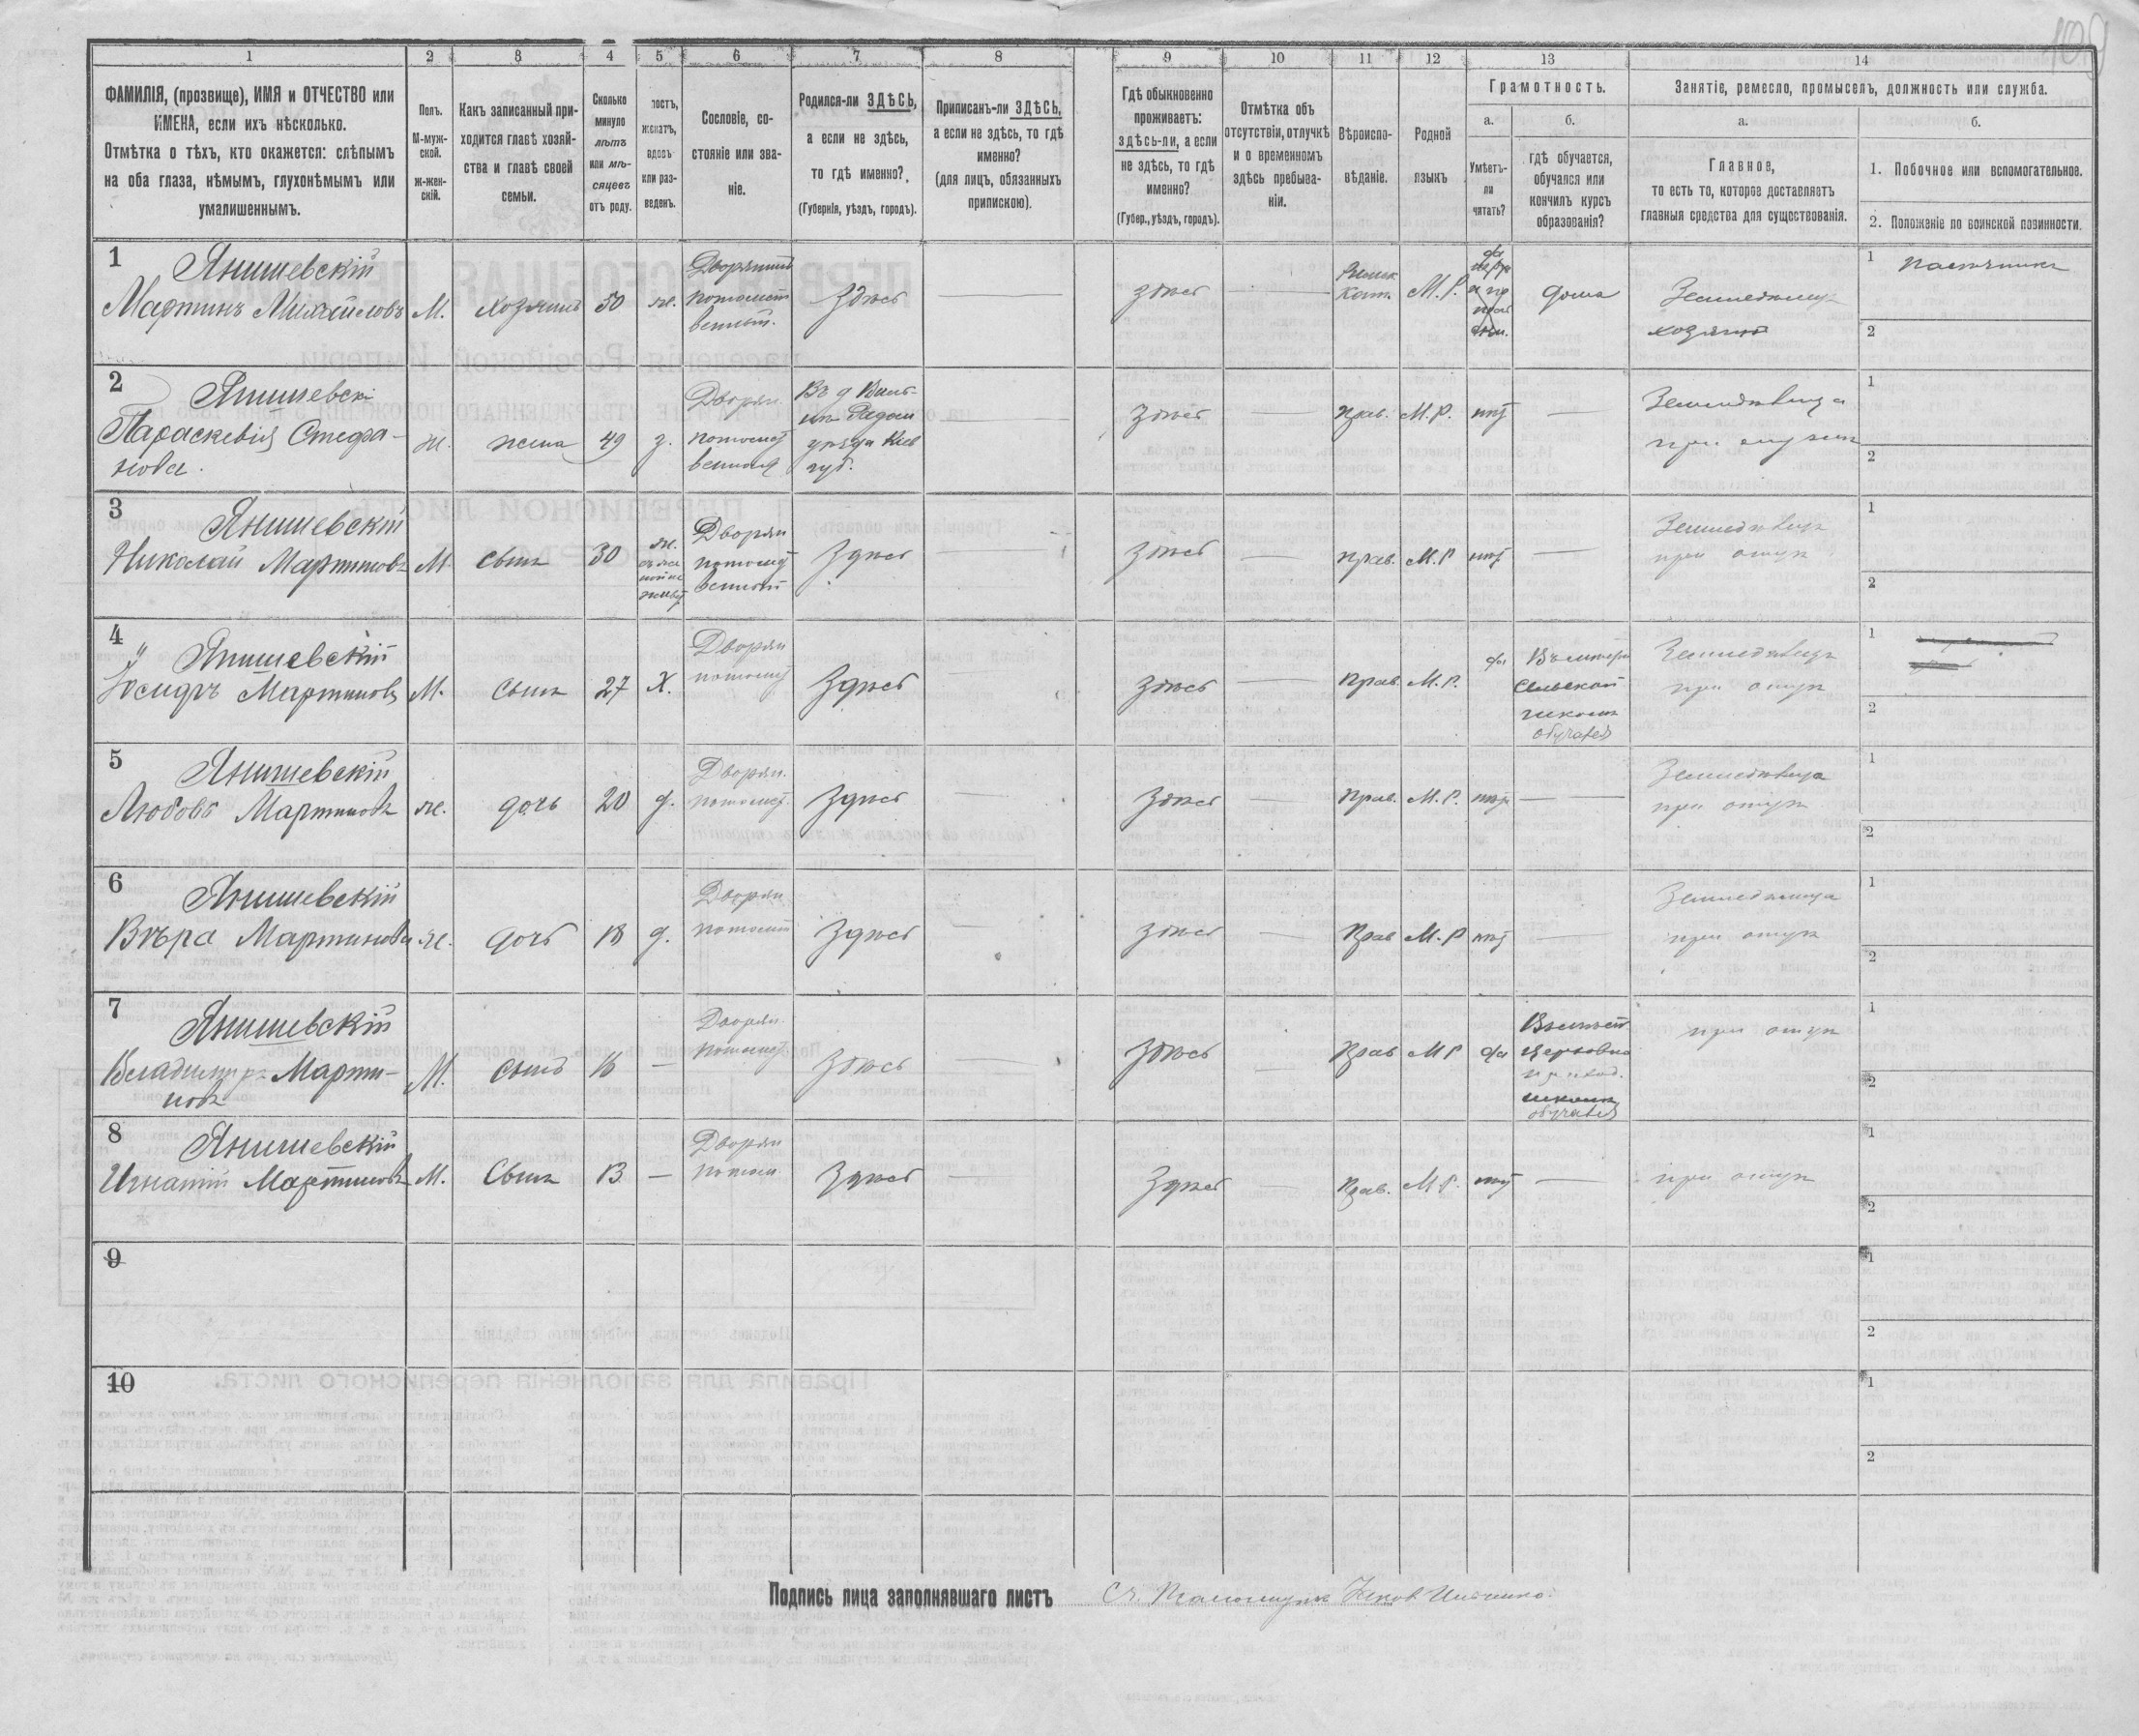 109
1 2 3 4 5 6 7 8 9 10 11 12 13 14
ФАМИЛІЯ, (прозвище), ИМЯ и ОТЧЕСТВО или
ИМЕНА, если ихъ нѣсколько.
Отмѣтка о тѣхъ, кто окажется: слѣпымъ
на оба глаза, нѣмымъ, глухонѣмымъ или
умалишеннымъ.
Полъ.
М-муж-
ской.
ж-жен-
скій.
Какъ записанный при-
ходится главѣ хозяй-
ства и главѣ своей
семьи.
Сколько
минуло
лѣтъ
или мѣ-
сяцевъ
отъ роду.
лостъ,
женатъ,
вдовъ
или раз-
веденъ.
Сословіе, со-
стояніе или зва-
ніе.
Родился-ли ЗДѢСЬ,
а если не здѣсь,
то гдѣ именно?
(Губернія, уѣздъ, городъ).
Приписанъ-ли ЗДѢСЬ,
а если не здѣсь, то гдѣ
именно?
(для лицъ, обязанныхъ
припискою).
Гдѣ обыкновенно
проживаетъ:
здѣсь-ли, а если
не здѣсь, то гдѣ
именно?
(Губер., уѣздъ, городъ).
Отмѣтка объ
отсутствіи, отлучкѣ
и о временномъ
здѣсь пребыва-
ніи.
Вѣроиспо-
вѣданіе.
Родной
языкъ
Грамотность.
а.
Умѣетъ-
ли
читать?
б.
гдѣ обучается,
обучался или
кончилъ курсъ
образованія?
Занятіе, ремесло, промыселъ, должность или служба.
а.
Главное,
то есть то, которое доставляетъ
главныя средства для существованія.
б.
1. Побочное или вспомогательное.
2. Положеніе по воинской повинности.
1
Янишевскій
Мартинъ Михайловъ
М.
хозяинъ
50
ж.
Дворянинъ
потомст
венный.
Здѣсь
здѣсь
Римск
Кат.
М.Р.
да
дома
Земледѣлец
хозяинъ
1 пасѣчникъ
2
2
Янишевскі
Параскевія Стефа-
нова.
ж.
жена
49
з.
Дворян.
потомст
венная
уѣзда Кіев
губ.
здѣсь
прав.
М.Р.
нѣт
Земледѣлица
при мужѣ
1
2
3
Янишевскій
Николай Мартиновъ
М.
сынъ
30
ж.
Дворян
потомст
венный
Здѣсь
здѣсь
прав.
М.Р
нѣт
Земледѣлецъ
при отцѣ
1
2
4
Янишевскій
Іосифъ Мартиновъ
М.
сынъ
27
Х.
Дворян
потомст
Здѣсь
здѣсь
прав.
М.Р.
да
Сельской
школѣ
обучался
Земледѣлецъ
при отцѣ
1
2
5
Янишевскій
Любовь Мартинова
ж.
дочь
20
д.
Дворян.
потомст.
Здѣсь
здѣсь
прав.
М.Р.
нѣт
Земледѣлица
при отцѣ
1
2
6
Янишевскій
Вѣра Мартинова
ж.
дочь
18
д.
Дворян
потомст
Здѣсь
здѣсь
Прав
М.Р
нѣт
Земледѣлица
при отцѣ
1
2
7
Янишевскій
Владиміръ Марти-
новъ
М.
сынъ
16
—
Дворян.
потомст.
Здѣсь
здѣсь
Прав
М Р
да
церковно
приход.
школѣ
обучался
при отцѣ
1
2
8
Янишевскій
Игнатій Мартиновъ
М.
Сынъ
13
—
Дворян
потом.
Здѣсь
Здѣсь
Прав.
М Р.
нѣт
при отцѣ
1
2
9
1
2
10
1
2
Подпись лица заполнявшаго листъ